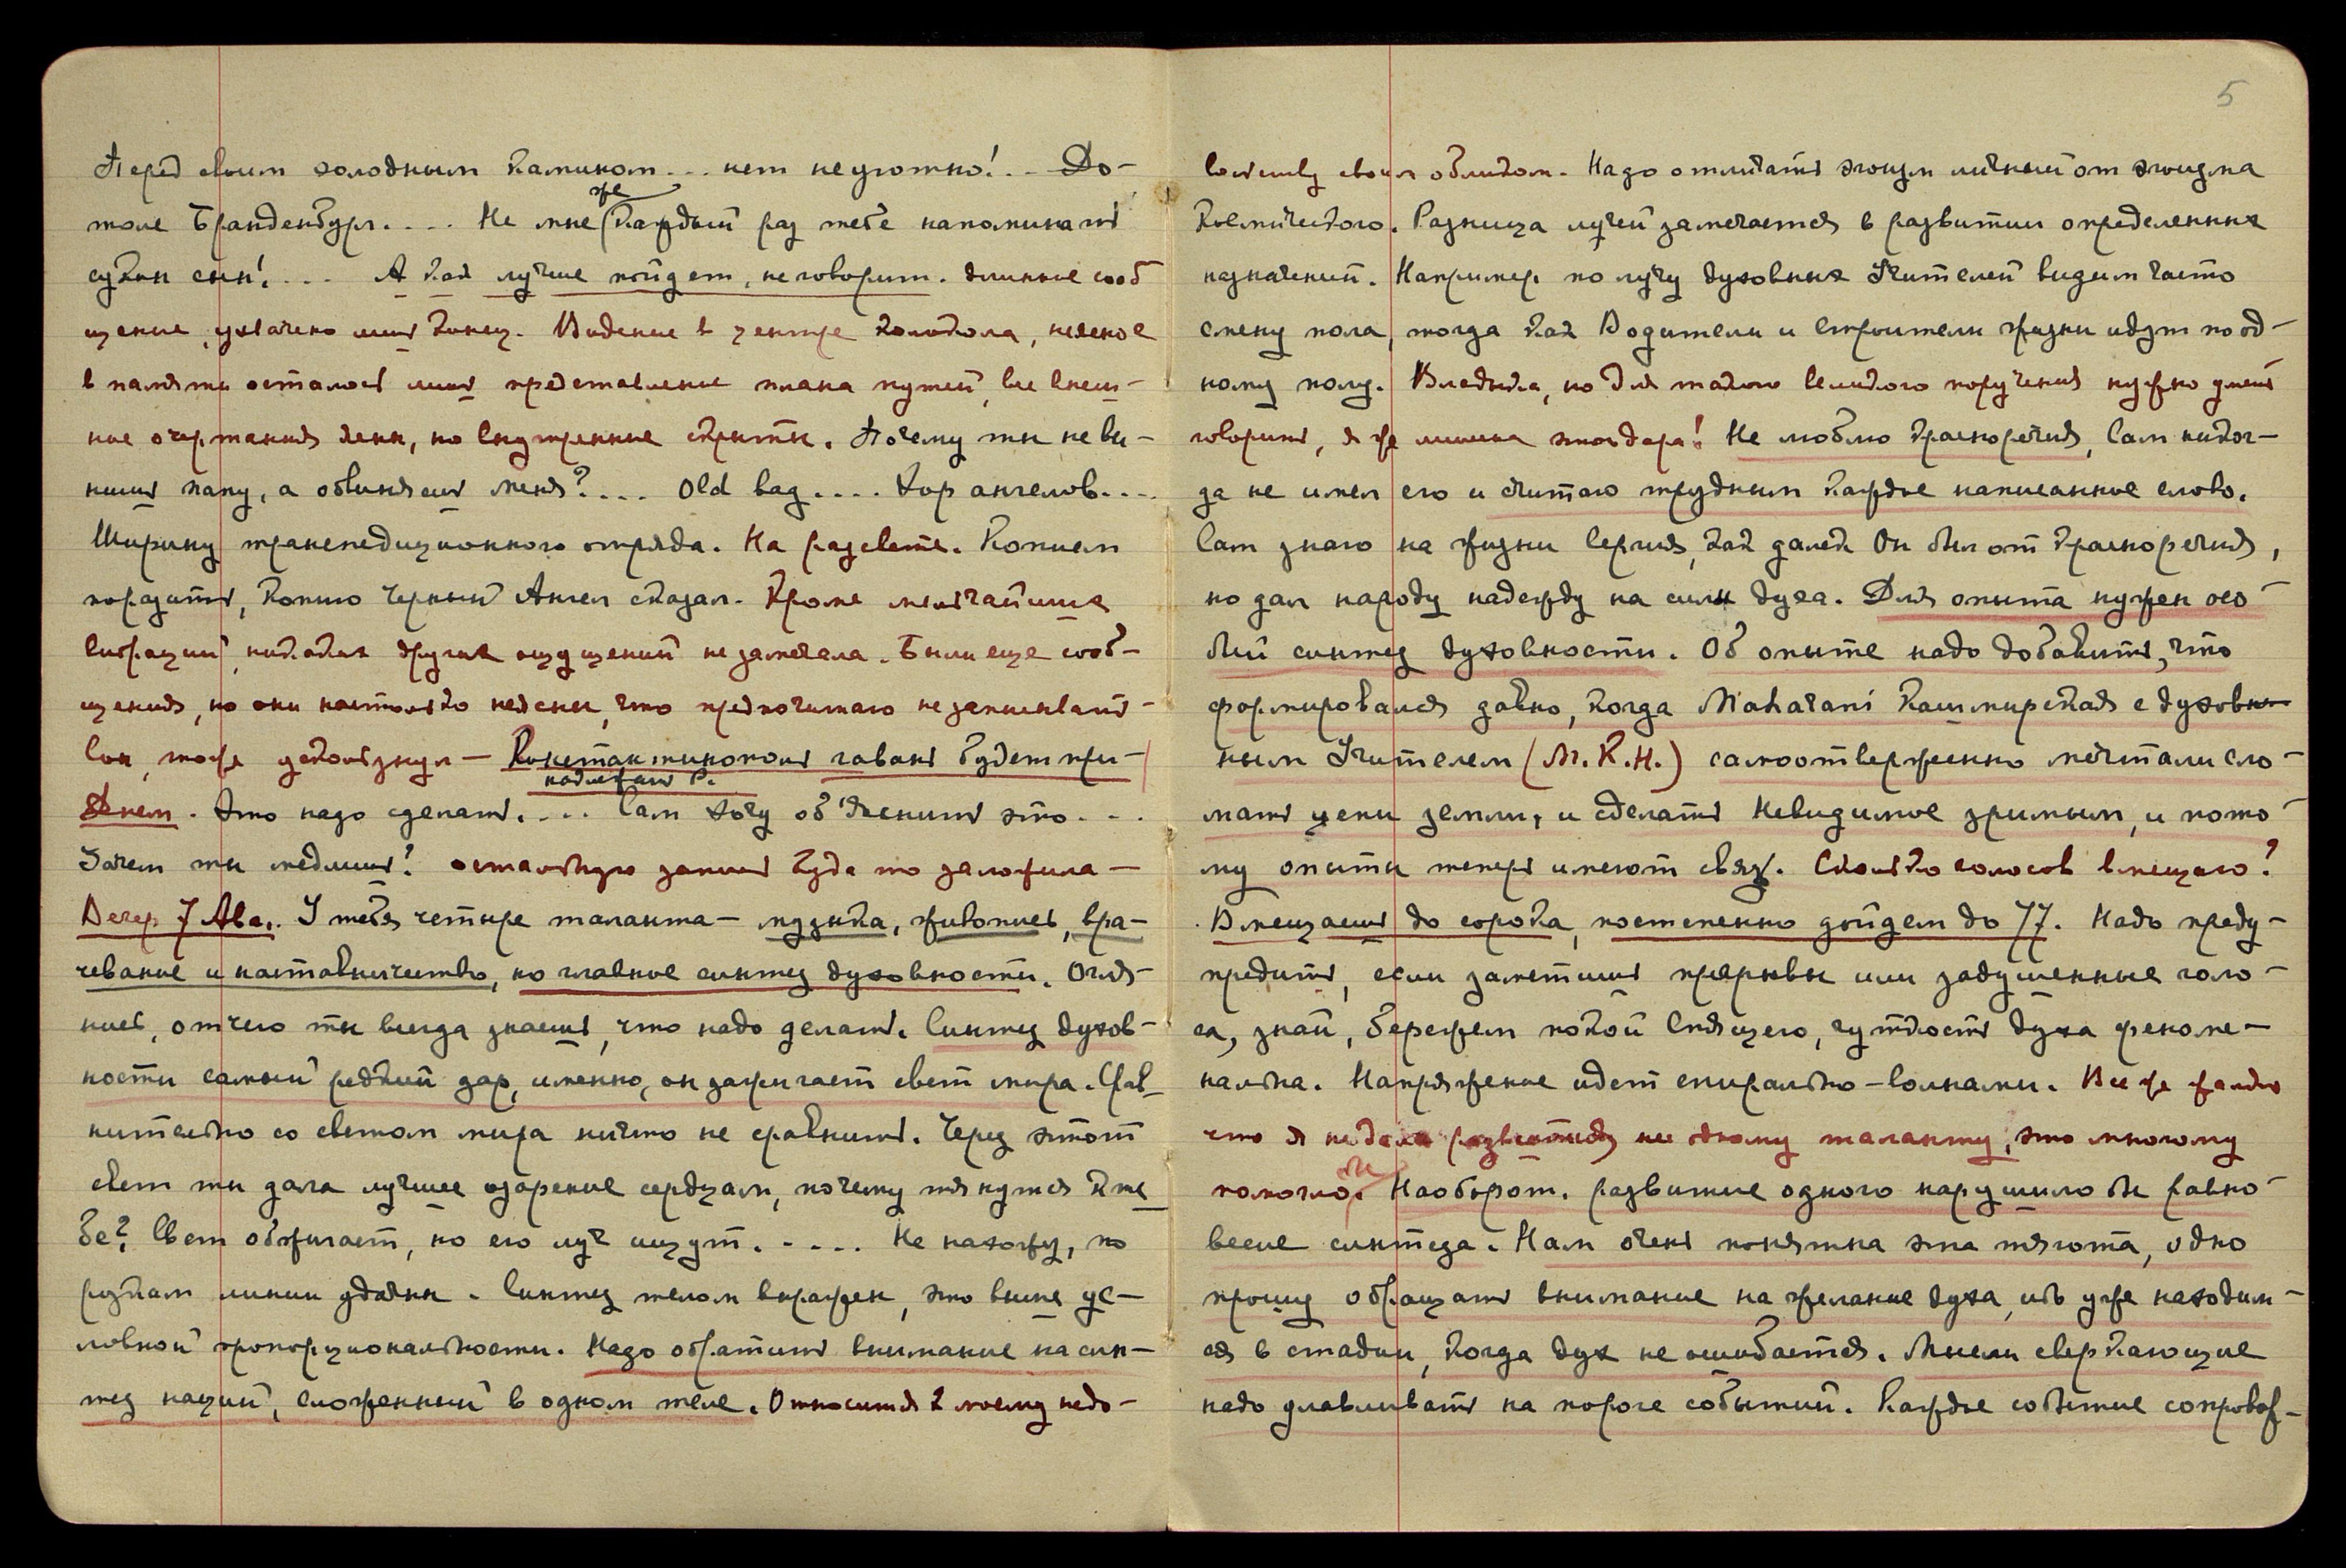 Перед своим холодным камином... нет неуютно!.. До-
толе Бранденбург.... Не мне же каждый раз тебе напоминать
сукин сын!.... А как лучше пойдет, не говорит. Длинное сооб
щение, ухвачено лишь конец. Видение в центре колокола, неясное
в памяти осталось лишь представление плана путей, все внеш-
ние очертания ясны, но внутренние скрыты. Почему ты не ви-
нишь папу, а обвиняешь меня?.... Old bag.... Хор ангелов....
Ширину транспедиционного отряда. На рассвете. Копием
поразить, Копию Черный Ангел сказал. Кроме легчайших
вибраций никаких других ощущений не замечала. Были еще сооб-
щения, но они настолько неясны, что предпочитаю не записывать-
Сон, тоже ускользнул — Константинополь гавань будет при-
надлежать Р.
Днем. Это надо сделать.... Сам хочу объяснить это...
Зачем ты медлишь? остальную запись куда то заложила —
Вечер 7 Авг. У тебя четыре таланта — музыка, живопись, вра-
чевание и наставничество, но главное синтез духовности. Огля-
нись, отчего ты всегда знаешь, что надо делать. Синтез духов-
ности самый редкий дар, именно, он зажигает свет мира. Срав-
нительно со светом мира ничто не сравнить. Через этот
свет ты дала лучшее озарение сердцам, почему тянутся к те
бе? Свет обжигает, но его луч ищут..... Не нахожу, но
рукам линии удачны. Синтез телом выражен, это выше ус-
ловной пропорциональности. Надо обратить внимание на син-
тез наций, сложенный в одном теле. Относится к моему недо-
5
вольству своим обликом. Надо отличать эгоизм личный от эгоизма
Космического. Разница лучей замечается в развитии определенных
назначений. Например по лучу духовных Учителей видим часто
смену пола, тогда как Водители и строители жизни идут по од-
ному полу. Владыка, но для такого великого поручения нужно уметь
говорить, я же лишена этого дара! Не люблю красноречия, Сам никог-
да не имел его и считаю трудным каждое написанное слово.
Сам знаю на жизни Сергия, как далек Он был от красноречия,
но дал народу надежду на силы духа. Для опыта нужен осо-
бый синтез духовности. Об опыте надо добавить, что
формировался давно, когда Maharani Кашмирская с духов
ным Учителем (М.К.Н.) самоотверженно мечтали сло-
мать цепи земли, и сделать Невидимое зримым, и пото-
му опыты теперь имеют связь. Сколько голосов вмещаю?
Вмещаешь до сорока, постепенно дойдем до 77. Надо преду-
предить, если заметишь прерывы или задушенные голо-
са, знай, бережем покой Спящего, чуткость духа феноме-
нальна. Напряжение идет спирально-волнами. Все же жалко
что я не дала развиться ни одному таланту, это многому
помогло бы. Наоборот, развитие одного нарушило бы равно-
весие синтеза. Нам очень понятна эта тягота, одно
прошу обращать внимание на желание духа, ибо уже находим-
ся в стадии, когда дух не ошибается. Мысли сверкающие
надо улавливать на пороге событий. Каждое событие сопровож-